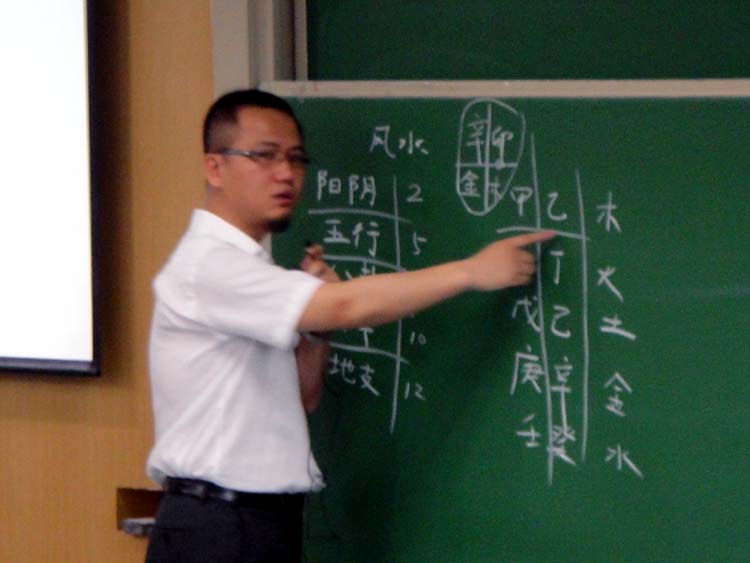 风水
阳阴 2
五行 5
干 10
地支 12
辛卯
金木
甲 乙 木
丁 火
戊 己 土
庚 辛 金
壬 癸 水